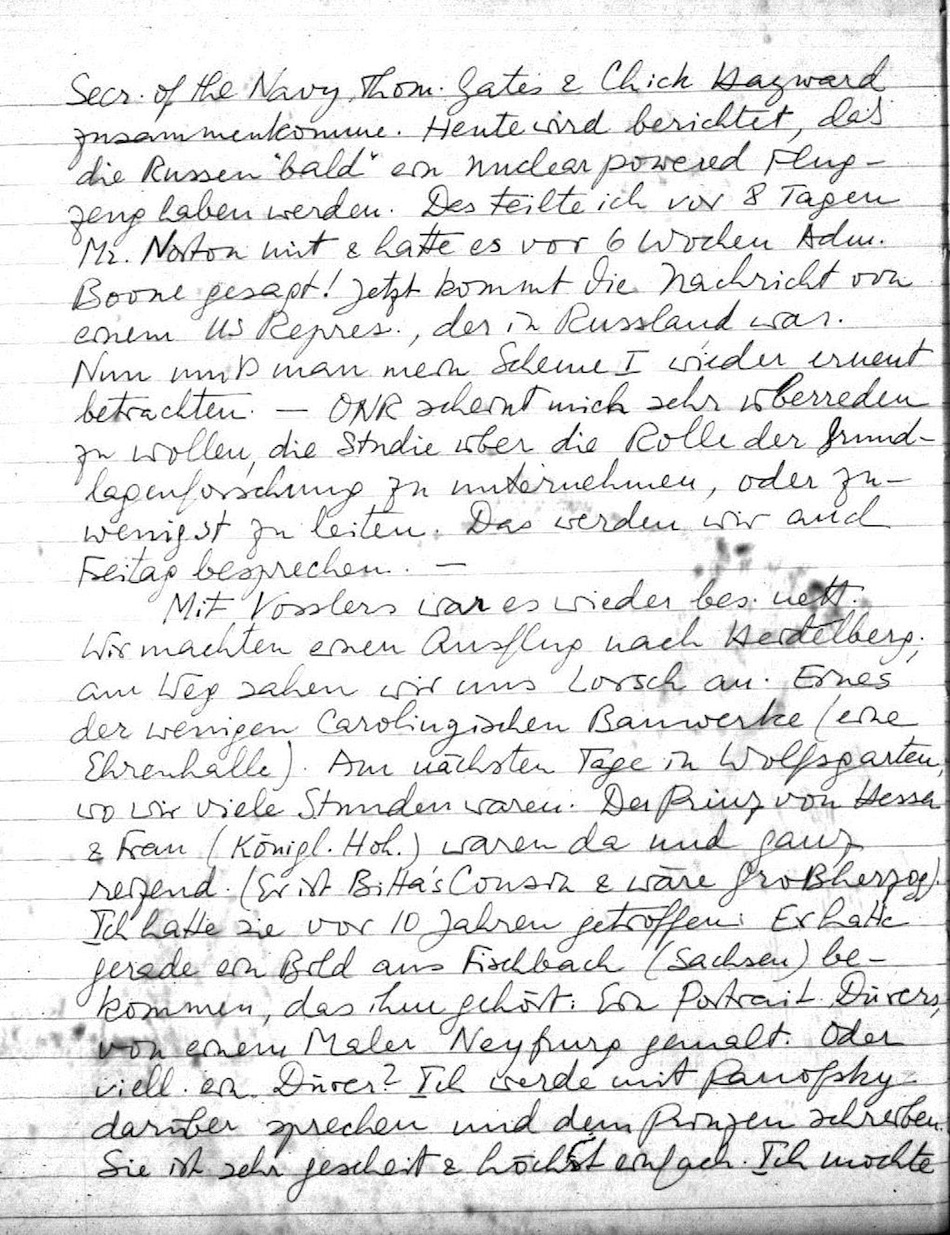 Secr. of the Navy, Thom. Gates & Chick Hayward
zusammenkomme. Heute wird berichtet, daß
die Russen "bald" ein nuclear powered Flug-
zeug haben werden. Des teilte ich vor 8 Tagen
Mr. Norton mit & hatte es vor 6 Wochen Adm.
Boone gesagt! Jetzt kommt die Nachricht von
einem US Repres., der in Russland war.
Nun muß man mein Scheme I wieder erneut
betrachten. — ONR scheint mich sehr überreden
zu wollen, die Studie über die Rolle der Grund-
lagenforschung zu unternehmen, oder zu-
wenigst zu leiten. Das werden wir auch
Feitag besprechen. —
Mit Vosslers war es wieder bes. nett.
Wir machten einen Ausflug nach Heidelberg;
am Weg sahen wir uns Lorsch an. Eines
der wenigen Carolingischen Bauwerke (eine
Ehrenhalle). Am nächsten Tage in Wolfsgarten,
wo wir viele Stunden waren. Der Prinz von Hessen
& Frau (Königl. Hoh.) waren da und ganz
reizend. (Er ist Bitta's Cousin & wäre Großherzog).
Ich hatte sie vor 10 Jahren getroffen. Er hatte
gerade ein Bild aus Fischbach (Sachsen) be-
kommen, das ihm gehört: Ein Portrait Dürers,
von einem Maler gemalt. Oder
viell. ein Dürer? Ich werde mit Panofsky
darüber sprechen und dem Prinzen schreiben.
Sie ist sehr gescheit & höchst einfach. Ich mochte